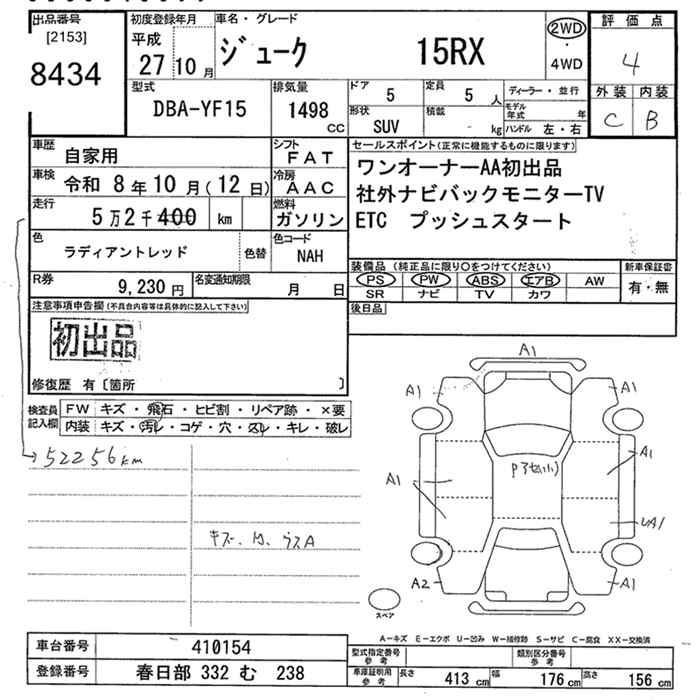 出品番号
[2153]
8434
初度登録年月
平成
27 10 月
車名・グレード
ジューク 15RX
2WD
・
4WD
評価点
4
外装 内装
C B
型式
DBA-YF15
排気量
1498
CC
ドア
5
定員
5 人
形状
SUV
積載
kg
ディーラー・並行
モデル年式 年
ハンドル 左・右
車歴
自家用
シフト
FAT
車検
令和 8年10月(12日)
冷房
AAC
走行
5万2千400 km
燃料
ガソリン
色
ラディアントレッド
色替
色コード
NAH
R券
9,230円
名変通知期限
月 日
セールスポイント(正常に機能するものに限ります)
ワンオーナーAA初出品
社外ナビバックモニターTV
ETC プッシュスタート
装備品(純正品に限り○をつけてください)
PS PW ABS エアB AW
SR ナビ TV カワ
新車保証書
有・無
後日品
注意事項申告欄(不具合内容等は具体的に記入して下さい)
初出品
修復歴 有〔箇所 〕
検査員
記入欄
FW キズ・飛石・ヒビ割・リペア跡・×要
内装 キズ・汚レ・コゲ・穴・スレ・キレ・破レ
52256km
キズ、凹、うスA
A1
A1
A1
A1
A1
A1
A2
UA1
スペア
A-キズ E-エクボ U-凹み W-補修跡 S-サビ C-腐食 XX-交換済
車台番号
410154
登録番号
春日部 332 む 238
型式指定番号
参考
類別区分番号
参考
車庫証明用
参考
長さ 413 cm 幅 176 cm 高さ 156 cm